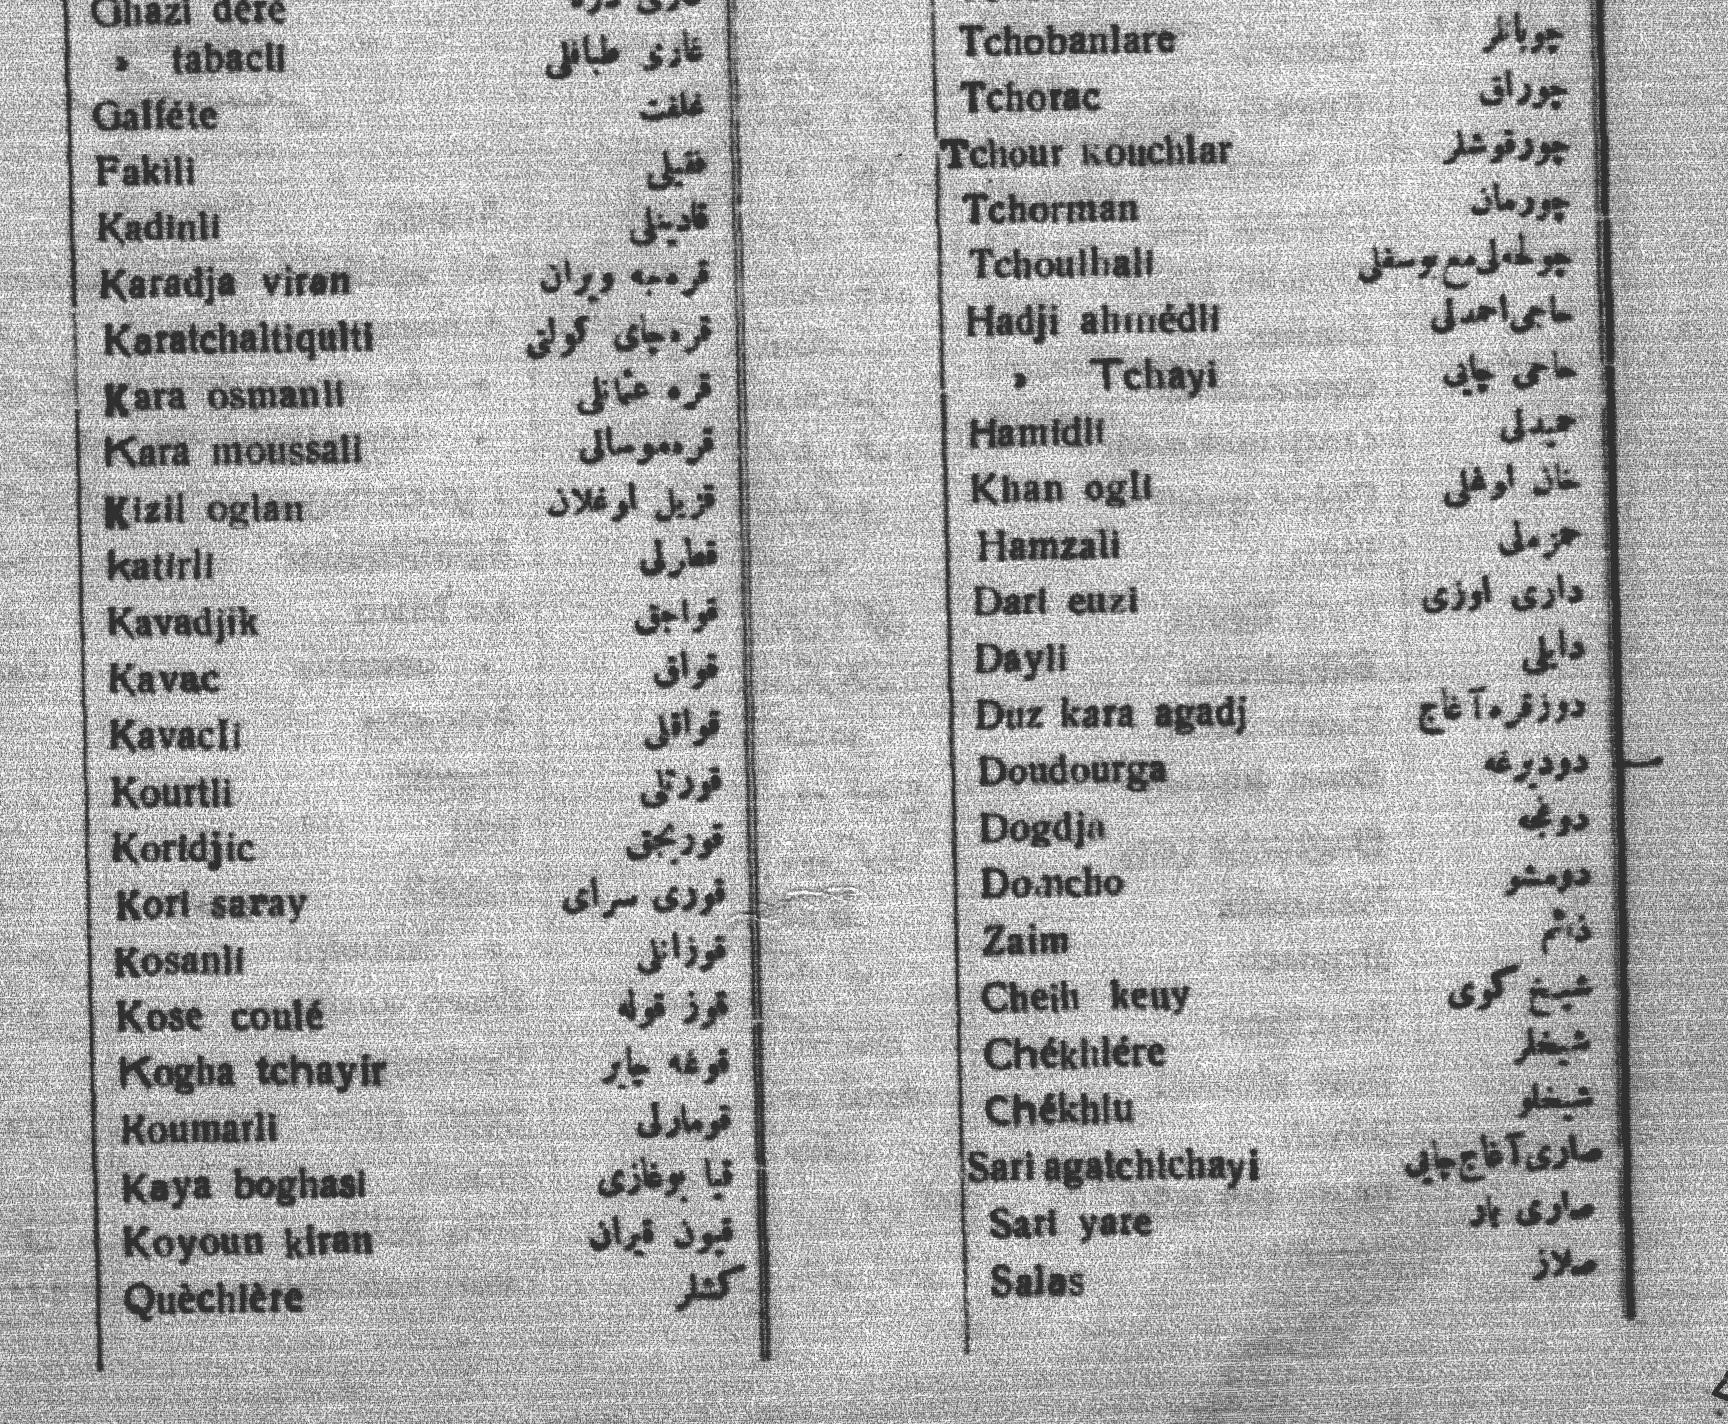 Ghazi déré غازی دره
» tabacli غازی طباقلی
Galféte غلفت
Fakili فقیلی
Kadinli قادینلی
Karadja viran قره‌جه ویران
Karatchaltiqulti قره‌چای کولتی
Kara osmanli قره عثمانلی
Kara moussali قره‌موسالی
Kizil oglan قزیل اوغلان
Katirli قطارلی
Kavadjik قواجق
Kavac قواق
Kavacli قواقلی
Kourtli قورتلی
Koridjic قوریجق
Kori saray قوری سرای
Kosanli قوزانلی
Kose coulé قوز قوله
Kogha tchayir قوغه چایر
Koumarli قومارلی
Kaya boghasi قیا بوغازی
Koyoun kiran قیون قیران
Quèchlère کشلر
Tchobanlare چوبانلر
Tchorac چوراق
Tchour Kouchlar چورقوشلر
Tchorman چورمان
Tchoulhali چولحه‌لی‌مع‌یوسفلی
Hadji ahmédli حاجی‌احمدلی
» Tchayi حاجی چایی
Hamidli حمیدلی
Khan ogli خان اوغلی
Hamzali حمزه‌لی
Dari euzi داری اوزی
Dayli دایلی
Duz kara agadj دوزقره‌آغاج
Doudourga دودیرغه
Dogdja دوغجه
Domcho دومشو
Zaim
Cheih keuy شیخ کوی
Chékhlére شیخلر
Chékhlu شیخلو
Sari agatchtchayi صاری‌آغاج‌چایی
Sari yare صاری یار
Salas صلاز